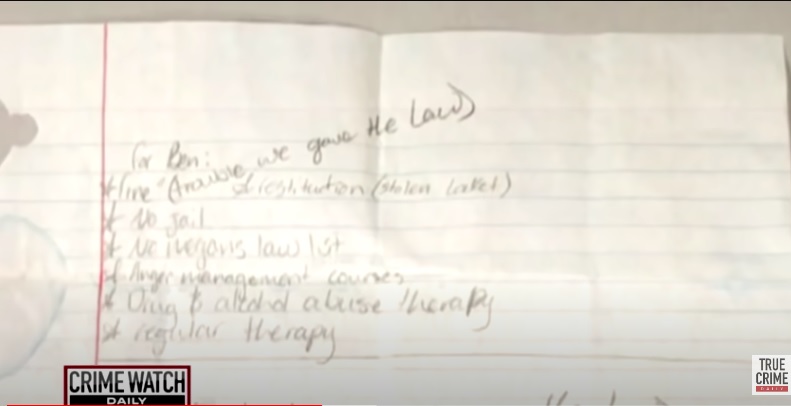 for Ben:
we gave the Law)
* fine * restitution (stolen
* No jail
* No Megans law lst
* Anger management courses
* Drug & alcohol abuse therapy
* regular therapy
CRIME WATCH
DAILY
TRUE
CRIME
DAILY